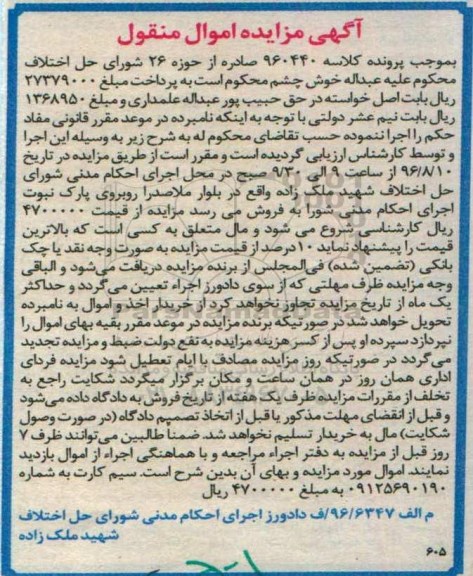 آگهی مزایده اموال منقول
بموجب پرونده کلاسه ۹۶۰۴۴۰ صادره از حوزه ۲۶ شورای حل اختلاف
محکوم علیه عبداله خوش چشم محکوم است به پرداخت مبلغ ۲۷۳۷۹۰۰۰
ریال بابت اصل خواسته در حق حبیب پور عبداله علمداری و مبلغ ۱۳۶۸۹۵۰
ریال بابت نیم عشر دولتی با توجه به اینکه نامبرده در موعد مقرر قانونی مفاد
حکم را اجرا ننموده حسب تقاضای محکوم له به شرح زیر به وسیله این اجرا
و توسط کارشناس ارزیابی گردیده است و مقرر است از طریق مزایده در تاریخ
۹۶/۸/۱۰ از ساعت ۹ الی ۹٫۳۰ صبح در محل اجرای احکام مدنی شورای
حل اختلاف شهید ملک زاده واقع در بلوار ملاصدرا روبروی پارک نبوت
اجرای احکام مدنی شورا به فروش می رسد مزایده از قیمت ۴۷۰۰۰۰۰
ریال کارشناسی شروع می شود و مال متعلق به کسی است که بالاترین
قیمت را پیشنهاد نماید ۱۰درصد از قیمت مزایده به صورت وجه نقد یا چک
بانکی (تضمین شده) فی‌المجلس از برنده مزایده دریافت می‌شود و الباقی
وجه مزایده ظرف مهلتی که از سوی دادورز اجراء تعیین می‌گردد و حداکثر
یک ماه از تاریخ مزایده تجاوز نخواهد کرد از خریدار اخذ و اموال به نامبرده
تحویل خواهد شد در صورتیکه برنده مزایده در موعد مقرر بقیه بهای اموال را
نپردازد سپرده او پس از کسر هزینه مزایده به نفع دولت ضبط و مزایده تجدید
می‌گردد در صورتیکه روز مزایده مصادف با ایام تعطیل شود مزایده فردای
اداری همان روز در همان ساعت و مکان برگزار میگردد شکایت راجع به
تخلف از مقررات مزایده ظرف یک هفته از تاریخ فروش به دادگاه داده می‌شود
و قبل از انقضای مهلت مذکور یا قبل از اتخاذ تصمیم دادگاه (در صورت وصول
شکایت) مال به خریدار تسلیم نخواهد شد. ضمنا طالبین می‌توانند ظرف ۷
روز قبل از مزایده به دفتر اجراء مراجعه و با هماهنگی اجراء از اموال بازدید
نمایند. اموال مورد مزایده و بهای آن بدین شرح است. سیم کارت به شماره
۰۹۱۲۵۶۹۰۱۹۰ به مبلغ ۴۷۰۰۰۰۰ ریال
م الف ۹۶/۶۳۴۷/ف دادورز اجرای احکام مدنی شورای حل اختلاف
شهید ملک زاده
۶۰۵